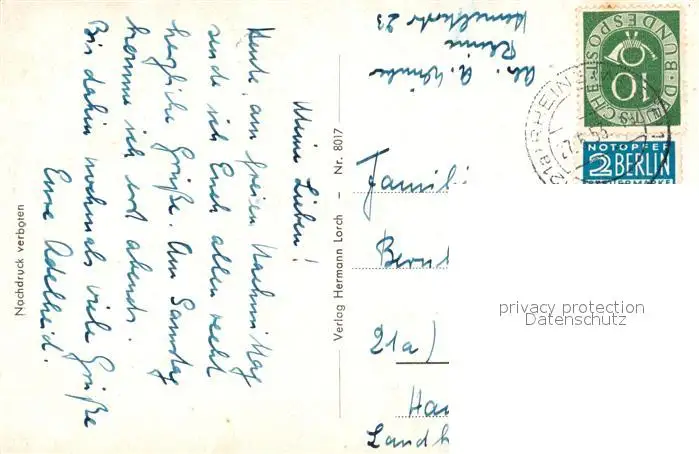 Meine Lieben!
Heute, am freien Nachmittag
sende ich Euch allen recht
herzliche Grüße. Am Samstag
komme ich erst abends.
Bis dahin nochmals viele Grüße
Eure Adelheid.
Nachdruck verboten
Verlag Hermann Lorch – Nr. 8017
Abs. A.
Rheine
23
Famili
Bern
21a)
Ha
Landh
DEUTSCHE BUNDESPOST
10
(21a) RHEINE
NOTOPFER
2 BERLIN
STEUERMARKE
privacy protection
Datenschutz